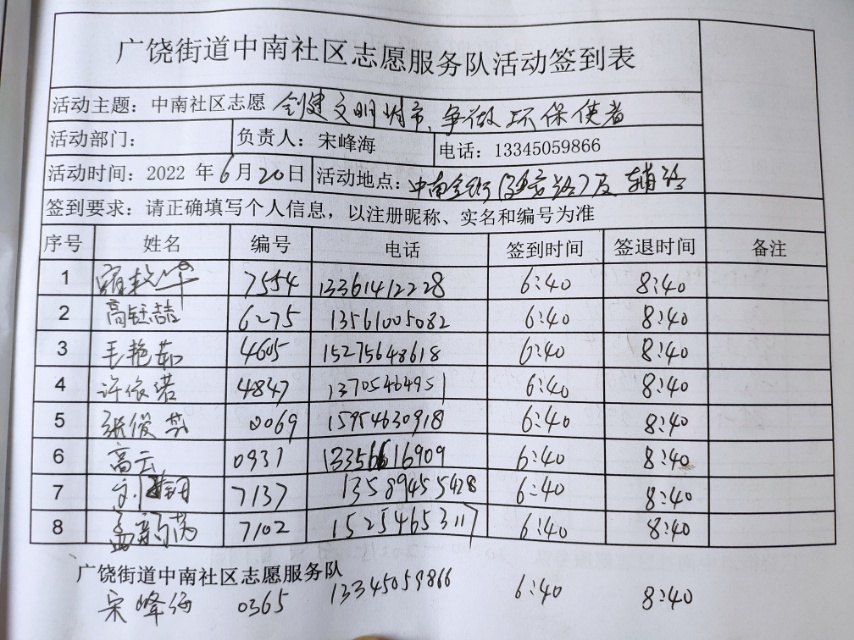 广饶街道中南社区志愿服务队活动签到表
活动主题：中南社区志愿 创建文明城市、争做环保使者
活动部门： 负责人：宋峰海 电话：13345059866
活动时间：2022 年 6月20日 活动地点：中南 及 辅路
签到要求：请正确填写个人信息，以注册昵称、实名和编号为准
序号 姓名 编号 电话 签到时间 签退时间 备注
1 7554 13361412228 6:40 8:40
2 高钰喆 6275 13561005082 6:40 8:40
3 毛艳茹 4605 15275648618 6:40 8:40
4 许依诺 4847 13705464951 6:40 8:40
5 张俊 0069 15954630918 6:40 8:40
6 高云 0937 13356616909 6:40 8:40
7 7137 13589455428 6:40 8:40
8 孟 7102 15254653117 6:40 8:40
广饶街道中南社区志愿服务队
宋峰海 0365 13345059866 6:40 8:40